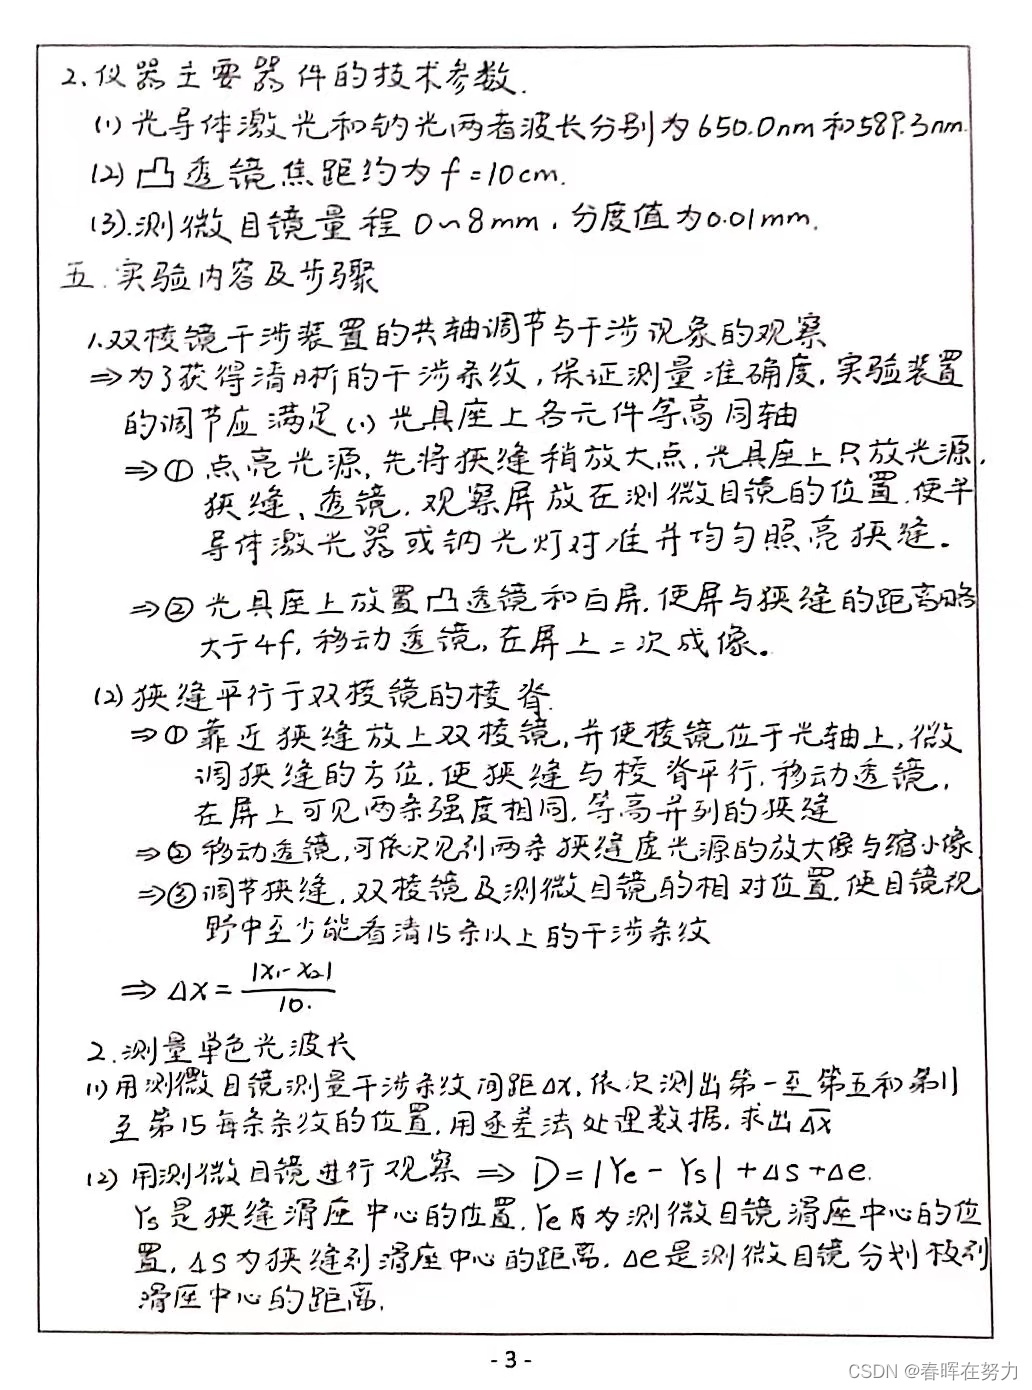 2.仪器主要器件的技术参数.
(1)光导体激光和钠光两者波长分别为650.0nm和589.3nm.
(2)凸透镜焦距约为f=10cm.
(3).测微目镜量程0~8mm,分度值为0.01mm.
五.实验内容及步骤
1.双棱镜干涉装置的共轴调节与干涉现象的观察
⇒为了获得清晰的干涉条纹,保证测量准确度,实验装置
的调节应满足(1)光具座上各元件等高同轴
⇒①点亮光源,先将狭缝稍放大点,光具座上只放光源,
狭缝、透镜,观察屏放在测微目镜的位置,使半
导体激光器或钠光灯对准并均匀照亮狭缝。
⇒②光具座上放置凸透镜和白屏,使屏与狭缝的距离略
大于4f,移动透镜,在屏上二次成像。
(2)狭缝平行于双棱镜的棱脊.
⇒①靠近狭缝放上双棱镜,并使棱镜位于光轴上,微
调狭缝的方位,使狭缝与棱脊平行,移动透镜,
在屏上可见两条强度相同,等高并列的狭缝
⇒②移动透镜,可依次见到两条狭缝虚光源的放大像与缩小像.
⇒③调节狭缝,双棱镜及测微目镜的相对位置,使目镜视
野中至少能看清15条以上的干涉条纹
⇒Δx=|x₁-x₂|/10.
2.测量单色光波长
(1)用测微目镜测量干涉条纹间距Δx,依次测出第一至第五和第11
至第15每条条纹的位置,用逐差法处理数据,求出Δx̅
(2)用测微目镜进行观察⇒D=|Ye-Ys|+Δs+Δe.
Ys是狭缝滑座中心的位置,Ye为测微目镜滑座中心的位
置,Δs为狭缝到滑座中心的距离,Δe是测微目镜分划板到
滑座中心的距离.
- 3 -
CSDN @春晖在努力